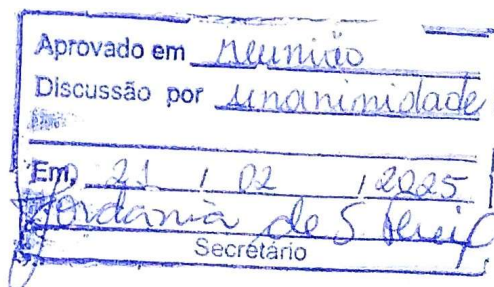 Aprovado em reunião
Discussão por unanimidade
Em, 21 / 02 / 2025
Jordania de S.
Secretário